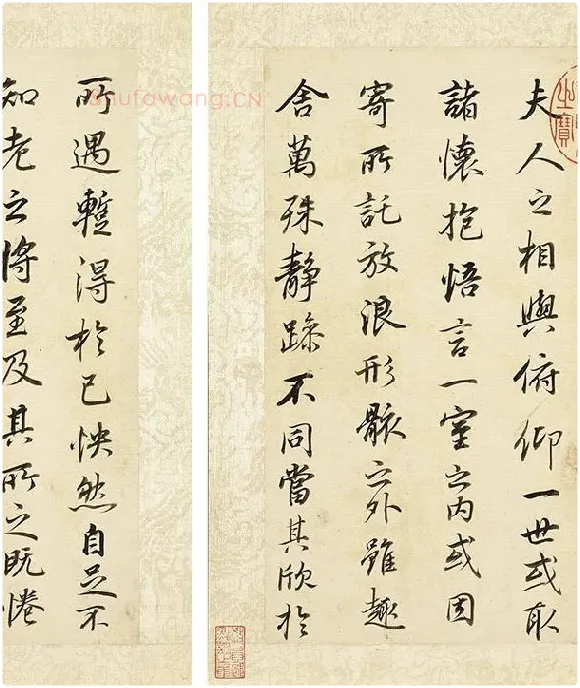 夫人之相與俯仰一世或取
諸懷抱悟言一室之内或因
寄所託放浪形骸之外雖趣
舍萬殊靜躁不同當其欣於
所遇暫得於己怏然自足不
知老之將至及其所之既惓
shufawang.CN
之寶